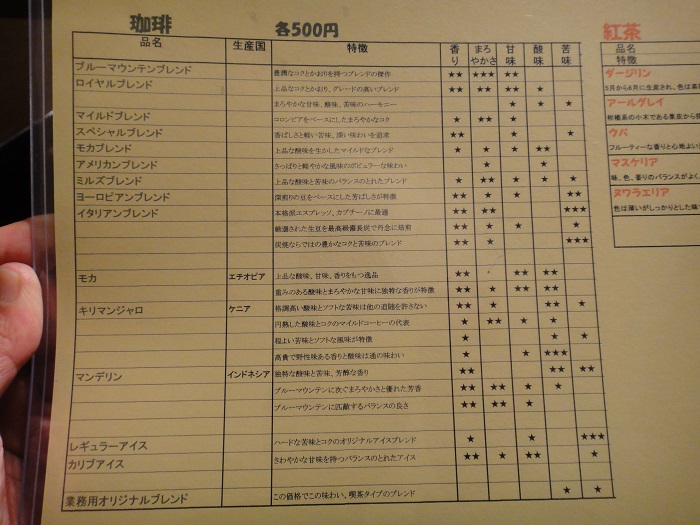 珈琲 各500円
品名 生産国 特徴 香り まろやかさ 甘味 酸味 苦味
ブルーマウンテンブレンド 豊潤なコクとかおりを持つブレンドの傑作 ★★ ★★★ ★★
ロイヤルブレンド 上品なコクとかおり、グレードの高いブレンド ★★ ★★ ★★ ★
まろやかな甘味、酸味、苦味のハーモニー ★ ★ ★
マイルドブレンド コロンビアをベースにしたまろやかなコク ★ ★★ ★
スペシャルブレンド 香ばしさと軽い苦味、深い味わいを追求 ★★ ★ ★
モカブレンド 上品な酸味を生かしたマイルドなブレンド ★ ★ ★ ★★
アメリカンブレンド さっぱりと軽やかな風味のポピュラーな味わい ★ ★
ミルズブレンド 上品な酸味と苦味のバランスのとれたブレンド ★ ★★ ★ ★ ★
ヨーロピアンブレンド 深煎りの豆をベースにした芳ばしさが特徴 ★★ ★ ★ ★★
イタリアンブレンド 本格派エスプレッソ、カプチーノに最適 ★★ ★★ ★★★
厳選された生豆を最高級備長炭で丹念に焙煎 ★★ ★ ★ ★
炭焼ならではの豊かなコクと苦味のブレンド ★★ ★ ★★★
モカ エチオピア 上品な酸味、甘味、香りをもつ逸品 ★★ ★★ ★★
重みのある酸味とまろやかな甘味に独特な香りが特徴 ★★ ★ ★★ ★★
キリマンジャロ ケニア 格調高い酸味とソフトな苦味は他の追随を許さない ★★ ★ ★★ ★
円熟した酸味とコクのマイルドコーヒーの代表 ★ ★★ ★ ★
程よい苦味とソフトな風味が特徴 ★ ★ ★
高貴で野性味ある香りと酸味は通の味わい ★ ★ ★★★
マンデリン インドネシア 独特な酸味と苦味、芳醇な香り ★★ ★★ ★★
ブルーマウンテンに次ぐまろやかさと優れた芳香 ★★ ★★ ★ ★
ブルーマウンテンに匹敵するバランスの良さ ★★ ★★ ★
レギュラーアイス ハードな苦味とコクのオリジナルアイスブレンド ★ ★ ★★★
カリブアイス さわやかな甘味を持つバランスのとれたアイス ★★ ★ ★★ ★
業務用オリジナルブレンド この価格でこの味わい、喫茶タイプのブレンド ★ ★
紅茶
品名
特徴
ダージリン
5月から6月に生産され、色は
アールグレイ
柑橘系の小木である果皮から
ウバ
フルーティーな香りと心地よい
マスケリア
味、色、香りのバランスがよく、
ヌワラエリア
色は薄いがしっかりとした味